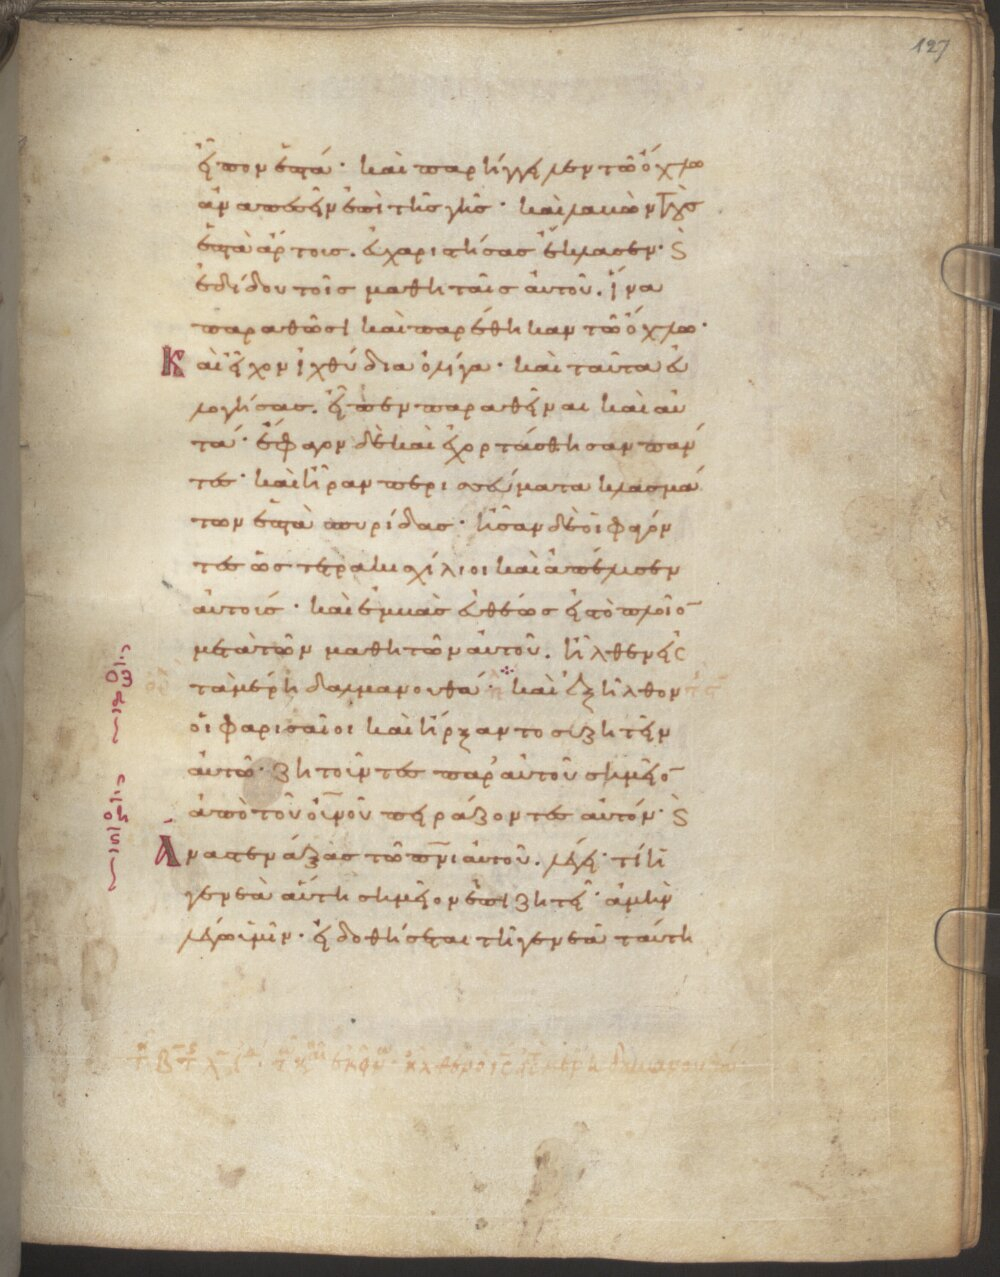 127
εἶπον ἑπτά· καὶ παρήγγειλεν τῶ ὄχλω
ἀναπεσεῖν ἐπὶ τῆς γῆς· καὶ λαβὼν τοὺς
ἑπτὰ ἄρτους. εὐχαριστήσας ἔκλασεν· ϛ̀
ἐδίδου τοῖς μαθηταῖς αὐτοῦ. ἵνα
παραθῶσι καὶ παρέθηκαν τῶ ὄχλω·
Καὶ εἶχον ἰχθύδια ὀλίγα· καὶ ταῦτα εὐ
λογήσας. εἶπεν παραθεῖναι καὶ αὐ
τά· ἔφαγον δὲ καὶ ἐχορτάσθησαν πάν
τες· καὶ ἦραν περισσεύματα κλασμά
των ἑπτὰ σπυρίδας· ἦσαν δὲ οἱ φαγόν
τες ὡς τετρακισχίλιοι καὶ ἀπέλυσεν
αὐτούς· καὶ ἐμβὰς εὐθέως εἰς τὸ πλοῖο̄
μετὰ τῶν μαθητῶν αὐτοῦ. ἦλθεν εἰς
τὰ μέρη δαλμανουθά· καὶ ἐξῆλθον
οἱ φαρισαῖοι καὶ ἤρξαντο συζητεῖν
αὐτῶ· ζητοῦντες παρ' αὐτοῦ σημεῖο̄
ἀπὸ τοῦ οὐνοῦ πειράζοντες αὐτόν· ϛ̀
Ἀναστενάξας τῶ πνι αὐτοῦ. λέγει· τί ἡ
γενεὰ αὕτη σημεῖον ἐπιζητεῖ· ἀμὴν
λέγω ὑμῖν· εἰ δοθήσεται τῆ γενεᾶ ταύτη